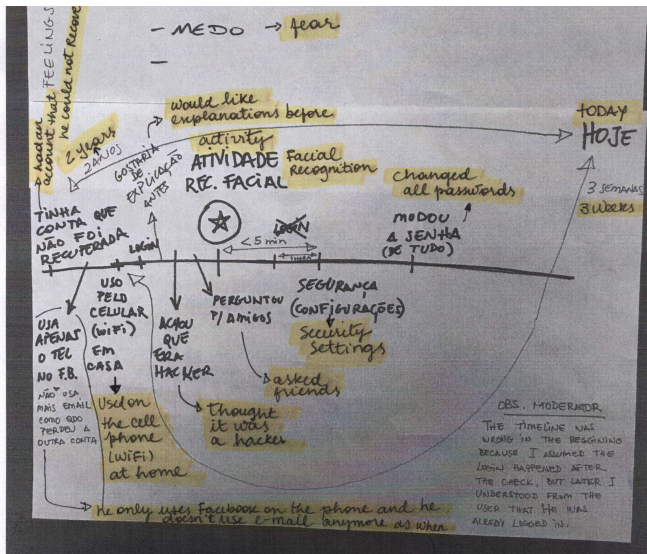 - MEDO → fear
-
had an
account that FEELINGS
he could not recove
2 years
2 ANOS
would like
explanations before
GOSTARIA
DE
EXPLICAÇÃO
ANTES
activity
ATIVIDADE Facial
REC. FACIAL Recognition
TODAY
HOJE
3 SEMANAS
3 weeks
changed
all passwords
MUDOU
A SENHA
(DE TUDO)
TINHA
CONTA QUE
NÃO FOI
RECUPERADA
LOGIN
LOGIN
<5 min
USA
APENAS
O TEL
NO F.B.
NÃO USA
MAIS EMAIL
COMO QDO
PERDEU A
OUTRA CONTA
USO
PELO
CELULAR
(WIFI)
EM
CASA
Used on
the cell
phone
(WiFi)
at home
ACHOU
QUE
ERA
HACKER
Thought
it was
a hacker
PERGUNTOU
P/ AMIGOS
asked
friends
SEGURANÇA
(CONFIGURAÇÕES)
Security
Settings
OBS. MODERATOR
THE TIMELINE WAS
WRONG IN THE BEGGINING
BECAUSE I ASSUMED THE
LOGIN HAPPENED AFTER
THE CHECK, BUT LATER I
UNDERSTOOD FROM THE
USER THAT HE WAS
ALREDY LOGGED IN.
he only uses Facebook on the phone and he
doesn't use e-mail anymore as when